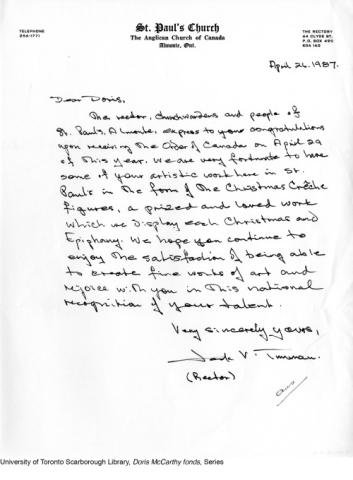 TELEPHONE
256-1771
St. Paul's Church
The Anglican Church of Canada
Almonte, Ont.
THE RECTORY
64 CLYDE ST.
P.O. BOX 490
K0A 1A0
April 26.1987.
Dear Doris,
The rector, churchwardens and people of
St. Paul's, Almonte, express to you congratulations
upon receiving the Order of Canada on April 29
of this year. We are very fortunate to have
some of your artistic work here in St.
Paul's in the form of the Christmas Crèche
figures, a prized and loved work
which we display each Christmas and
Epiphany. We hope you continue to
enjoy the satisfaction of being able
to create fine works of art and
rejoice with you in this national
recognition of your talent.
Very sincerely yours,
Jack V.
(Rector)
University of Toronto Scarborough Library, Doris McCarthy fonds, Series